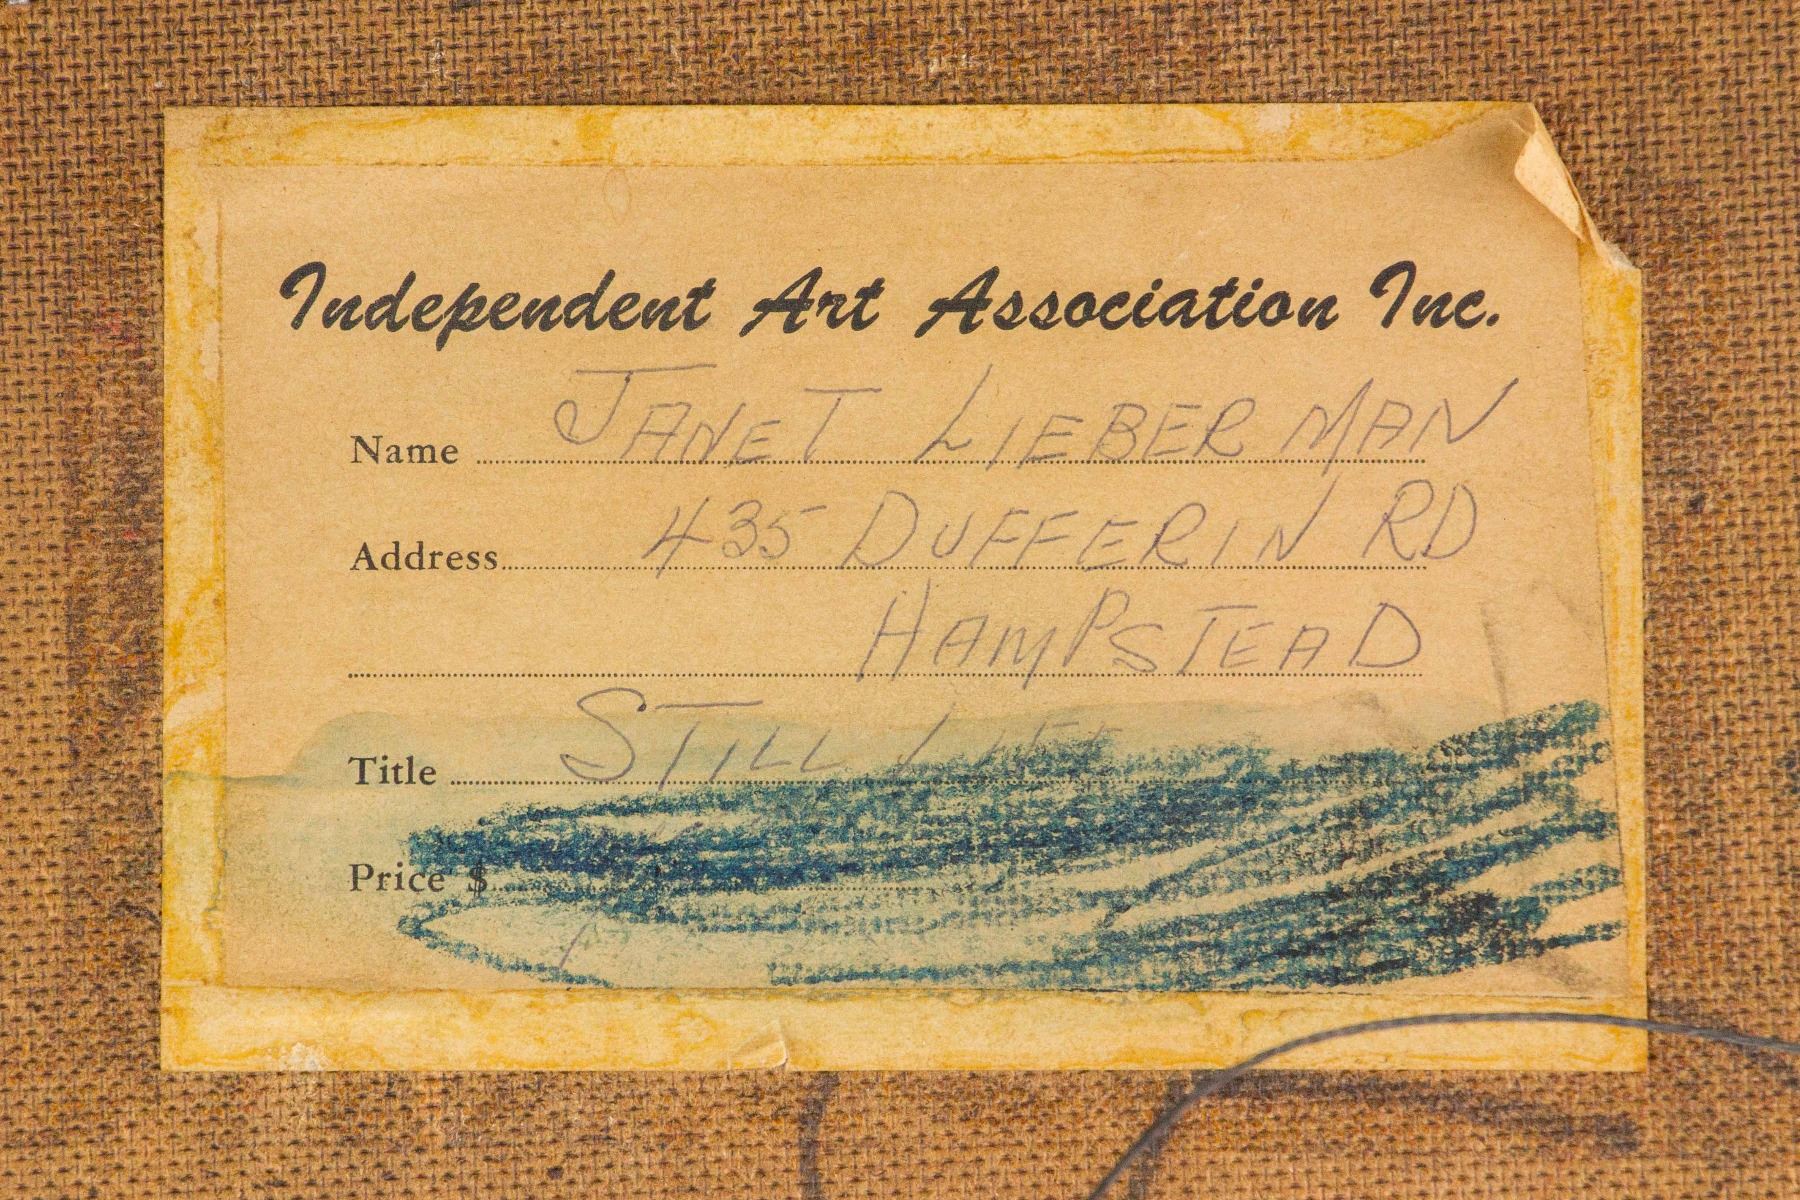 Independent Art Association Inc.
Name JANET LIEBERMAN
Address 435 DUFFERIN RD
HAMPSTEAD
Title STILL LIFE
Price $